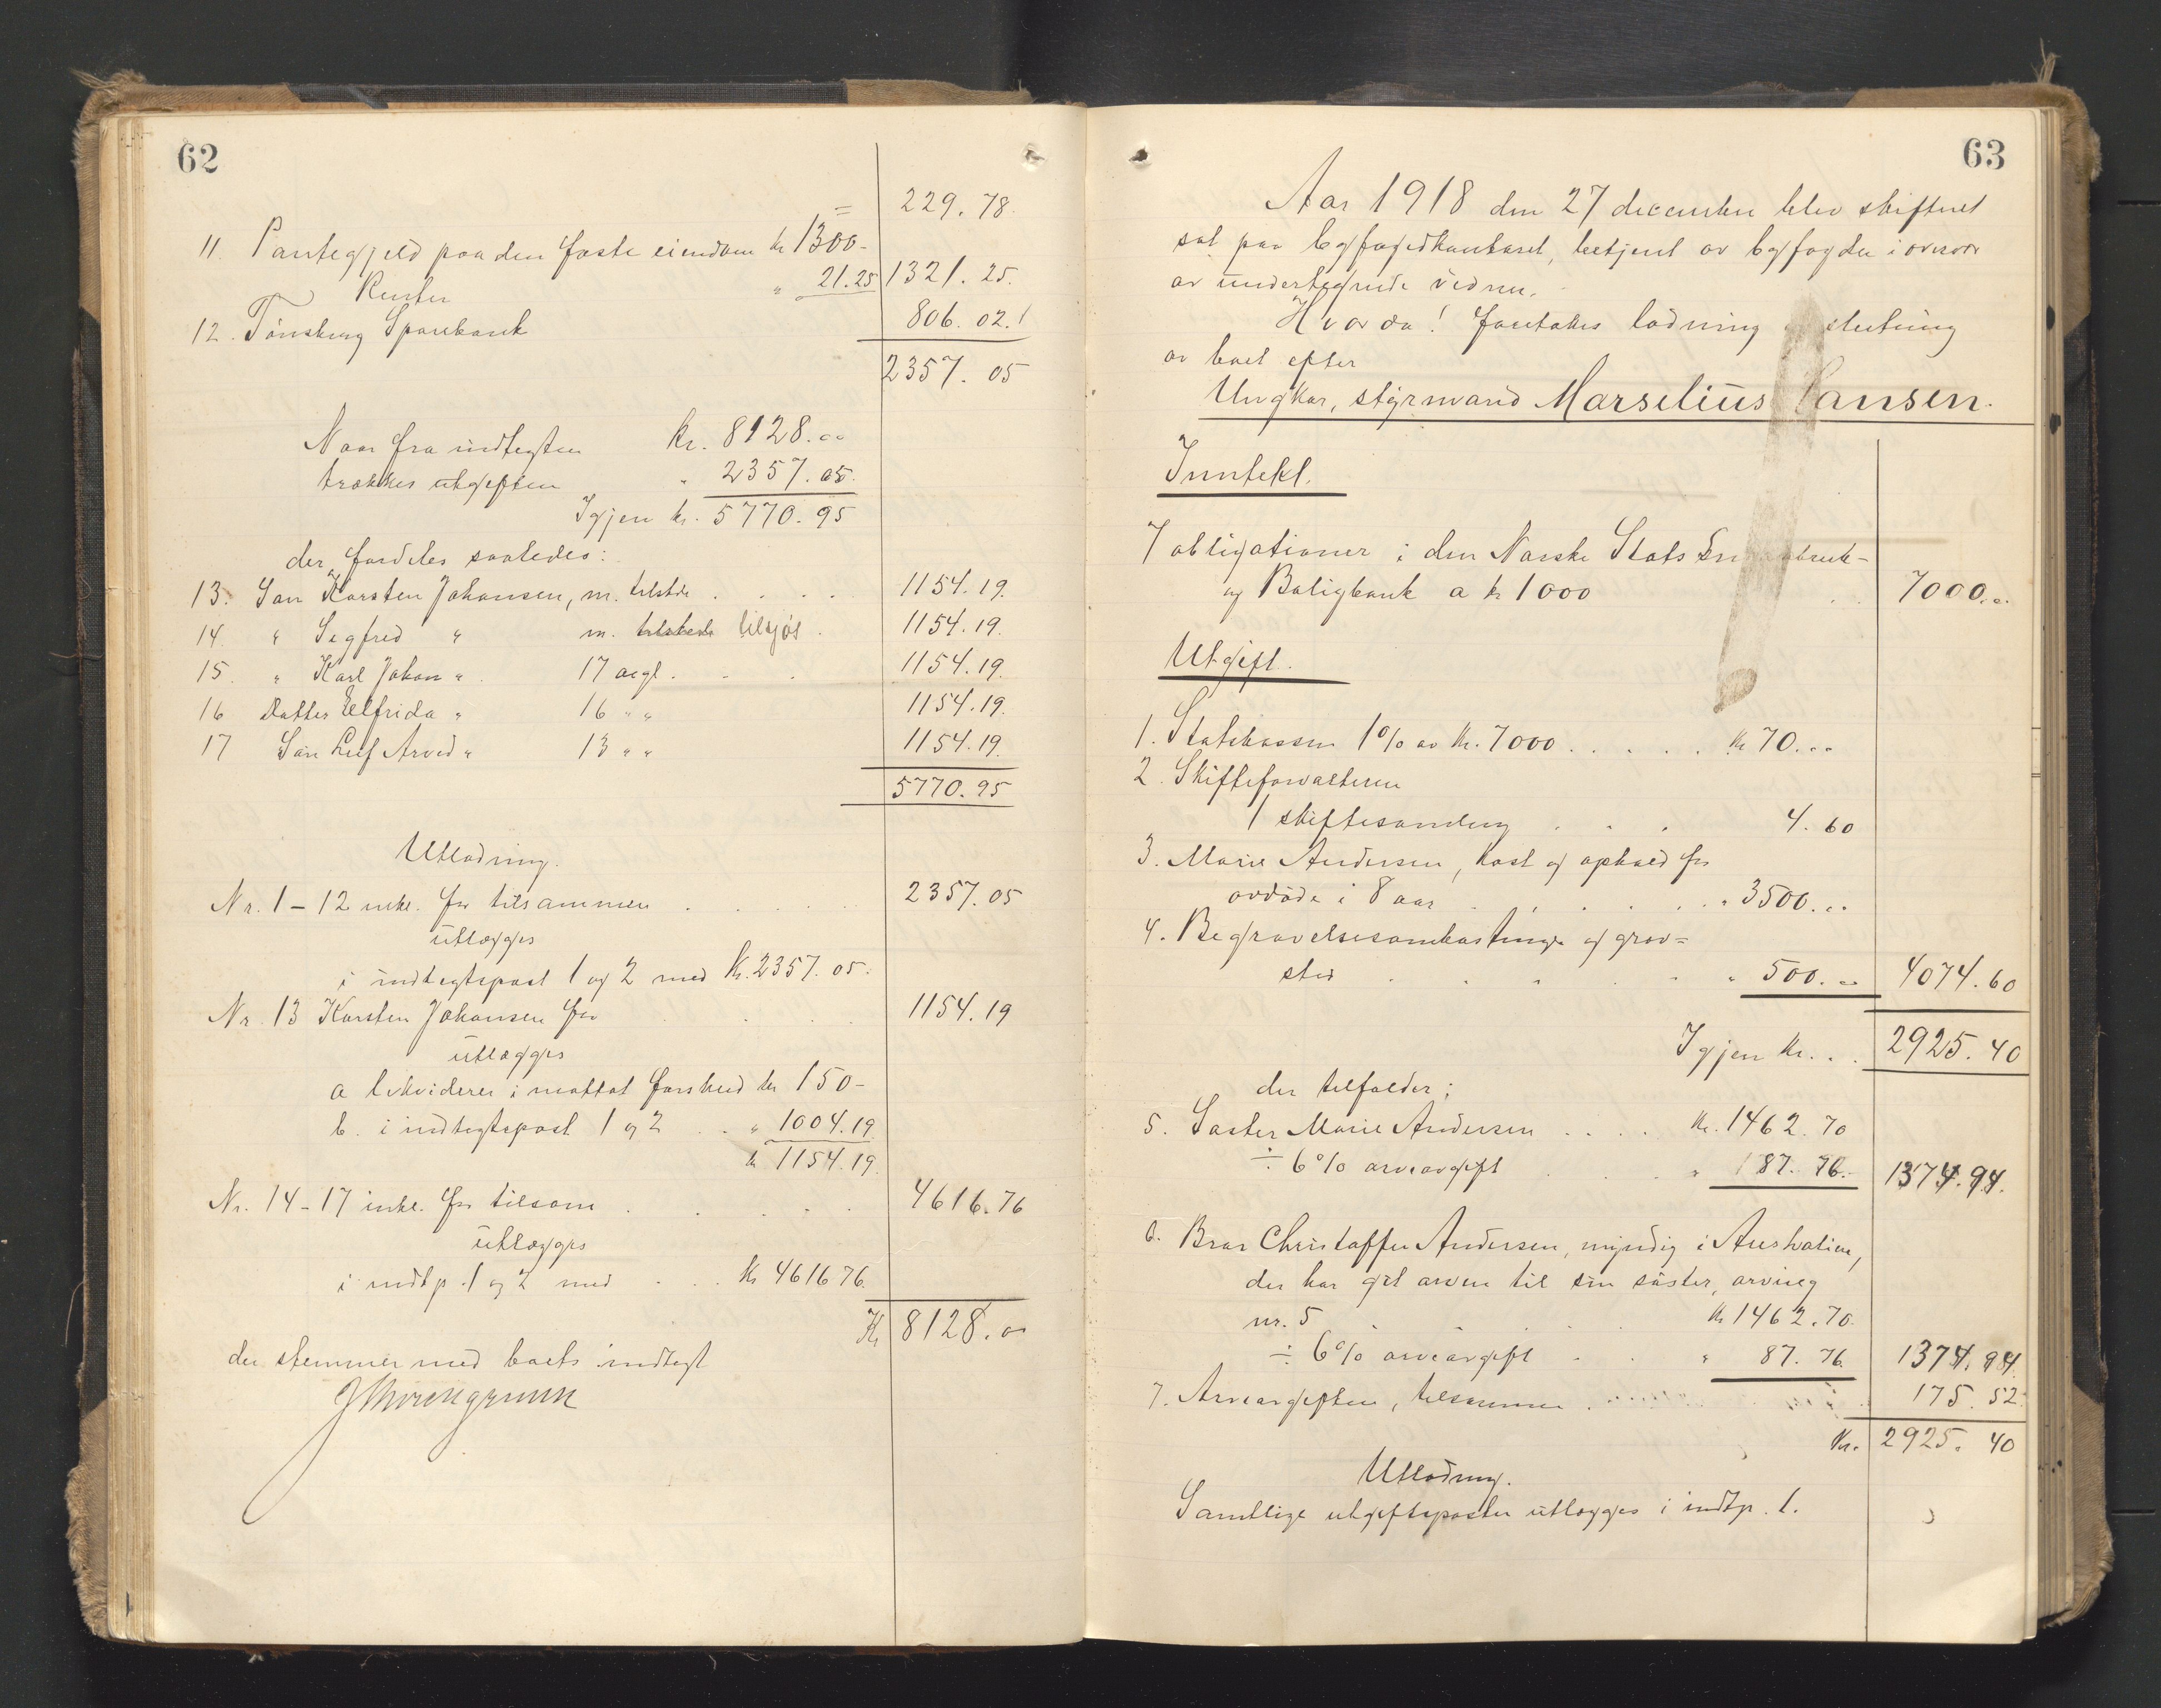 62
= 229.78.
11. Pantegjeld paa den faste eiendom kr 1300-
Renter " 21.25 1321.25.
12. Tönsberg Sparebank 806.02.
2357.05
Naar fra indtegten kr. 8128.00
trækkes utgiften " 2357.05.
Igjen kr. 5770.95
der fordeles saaledes:
13. Søn Karsten Johansen, m. tilstede . . . . 1154.19.
14. " Sigfred " m. tilstede tilsjøs . 1154.19.
15. " Karl Johan " 17 aar gl. . . 1154.19.
16 Datter Elfrida " 16 " " 1154.19.
17 Søn Leif Arvid " 13 " " 1154.19.
5770.95
Utlodning.
Nr. 1-12 inkl. for tilsammen . . . . 2357.05
utlægges
i indtegtspost 1 og 2 med Kr. 2357.05.
Nr. 13 Karsten Johansen for . . . . 1154.19
utlægges
a likviderer i mottat forskud kr 150-
b. i indtegtspost 1 og 2 . . " 1004.19
kr 1154.19.
Nr. 14-17 inkl. for tilsam . . . . . 4616.76
utlægges
i indtp. 1 og 2 med . . . Kr 4616 76.
Kr 8128.00
der stemmer med boets indtegt
63
Aar 1918 den 27 december blev skifteret
sat paa byfogedkontoret, betjent av byfogden i overvær
av undertegnede vidner.
Hvorda! foretokes lodning og slutning
av boet efter
Ungkar, styrmand Marselius Hansen.
Inntekt.
7 obligationer i den Norske Stats Småbruk-
og Boligbank a kr 1000 . . 7000.00
Utgift.
1. Statskassen 1% av kr. 7000 . . . . . kr 70.00
2. Skifteforvalteren
1 skiftesamling . . . 4.60
3. Marie Andersen, kost og ophold for
avdøde i 8 aar . . . . . " 3500.00
4. Begravelsesomkostninger og grav=
sted . . . . . " 500.00 4074.60
Igjen kr. . . 2925.40
der tilfalder:
5. Søster Marie Andersen . . . . kr. 1462.70
÷ 6% arveavgift . . . " 87.76. 1374.94.
6. Bror Christoffer Andersen, myndig i Australien,
der har git arven til sin søster, arving
nr. 5 . . . . kr 1462.70.
÷ 6% arveavgift . . " 87.76 1374.94.
7. Arveavgiften, tilsammen . . . . . 175.52.
Kr. 2925.40
Utlodning.
Samtlige utgiftsposter utlægges i indtp. 1.